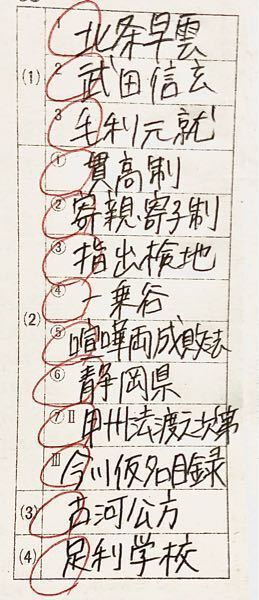 (1)
1 北条早雲
2 武田信玄
3 毛利元就
(2)
① 貫高制
② 寄親・寄子制
③ 指出検地
④ 一乗谷
⑤ 喧嘩両成敗法
⑥ 静岡県
⑦ II 甲州法度之次第
III 今川仮名目録
(3) 古河公方
(4) 足利学校